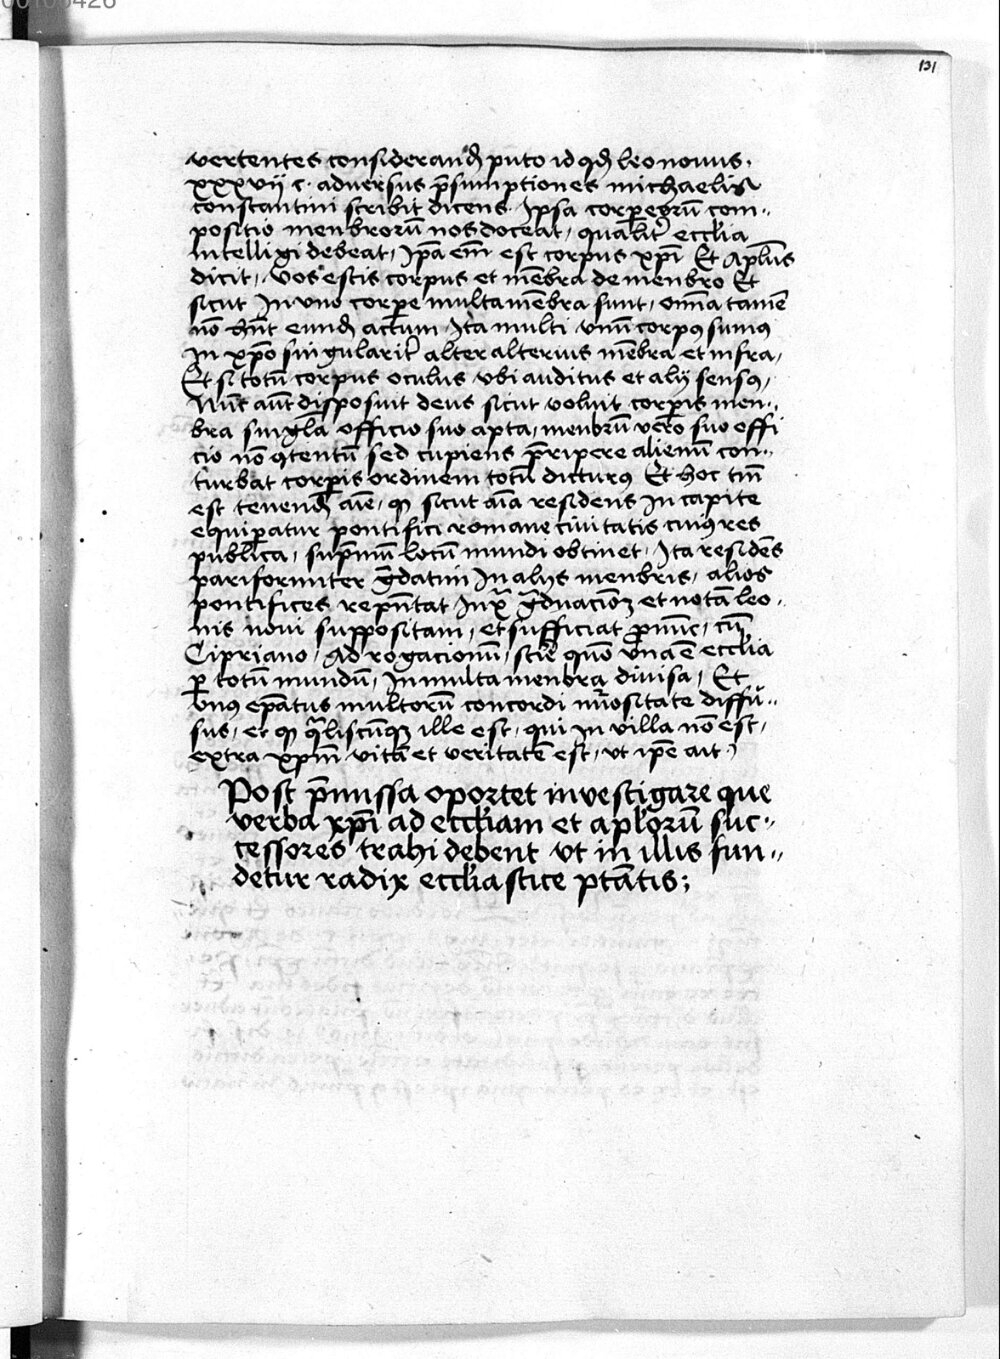 131
vertentes considerand̄ puto id qd̄ leo nonus·
xxxvii c· adversus p̄sumptiones michaelis
constantini scribit dicens· Ipsa corporeoru͂ com〃
positio menbroru͂ nos doceat, qualit᷑ eccl̄ia
intelligi debeat, Ip̄a em̄ est corpus xp̄i Et Apl̄us
dicit, vos estis corpus et me͂bra de menbro Et
sicut In vno corpore multa me͂bra sunt, om̄ia tame͂
no͂ hn̄t eund̄ actum, Ita multi vnu͂ corpus sumus
In xp̄o singularit᷑ alter alterius me͂bra et infra,
Et si totu͂ corpus oculus vbi auditus et alij sensus,
Nu͂c aut̄ disposuit deus sicut voluit corporis men〃
bra singl̄a officio suo apta, menbru͂ vero suo offi
cio no͂ ꝯtentu͂ sed cupiens p̄ripere alienu͂ con〃
turbat corporis ordinem totu͂ dicturus Et hoc tm̄
est tenend̄ , sicut ai͂a residens In capite
equiꝑatur pontifici romane civitatis cuius res
publica, sup̄mu͂ locu͂ mundi obtinet, Ita reside͂s
pariformiter g̃datim In alijs menbris, alios
pontifices rep̄ntat Iux͂ g̃duac̄ioꝫ et nota͂ leo〃
nis noni suppositam, et sufficiat nunc, cu͂
Cipriano, Ad rogacianu͂, scire quo͂ vna e͂ eccl̄ia
ꝑ totu͂ mundu͂, In multa menbra divisa, Et
vnus ep̄atus multoru͂ concordi nu͂ositate diffu〃
sus, et ꝙ q̃liscu͂qꝫ ille est, qui In villa no͂ est,
extra xpm̄ vita͂ et veritate͂ est, vt ip̄e ait,
Post p̄missa oportet investigare que
verba xp̄i ad eccl̄iam et apl̄oru͂ suc〃
cessores trahi debent vt in illis fun〃
detur radix eccl̄iastice ptātis;